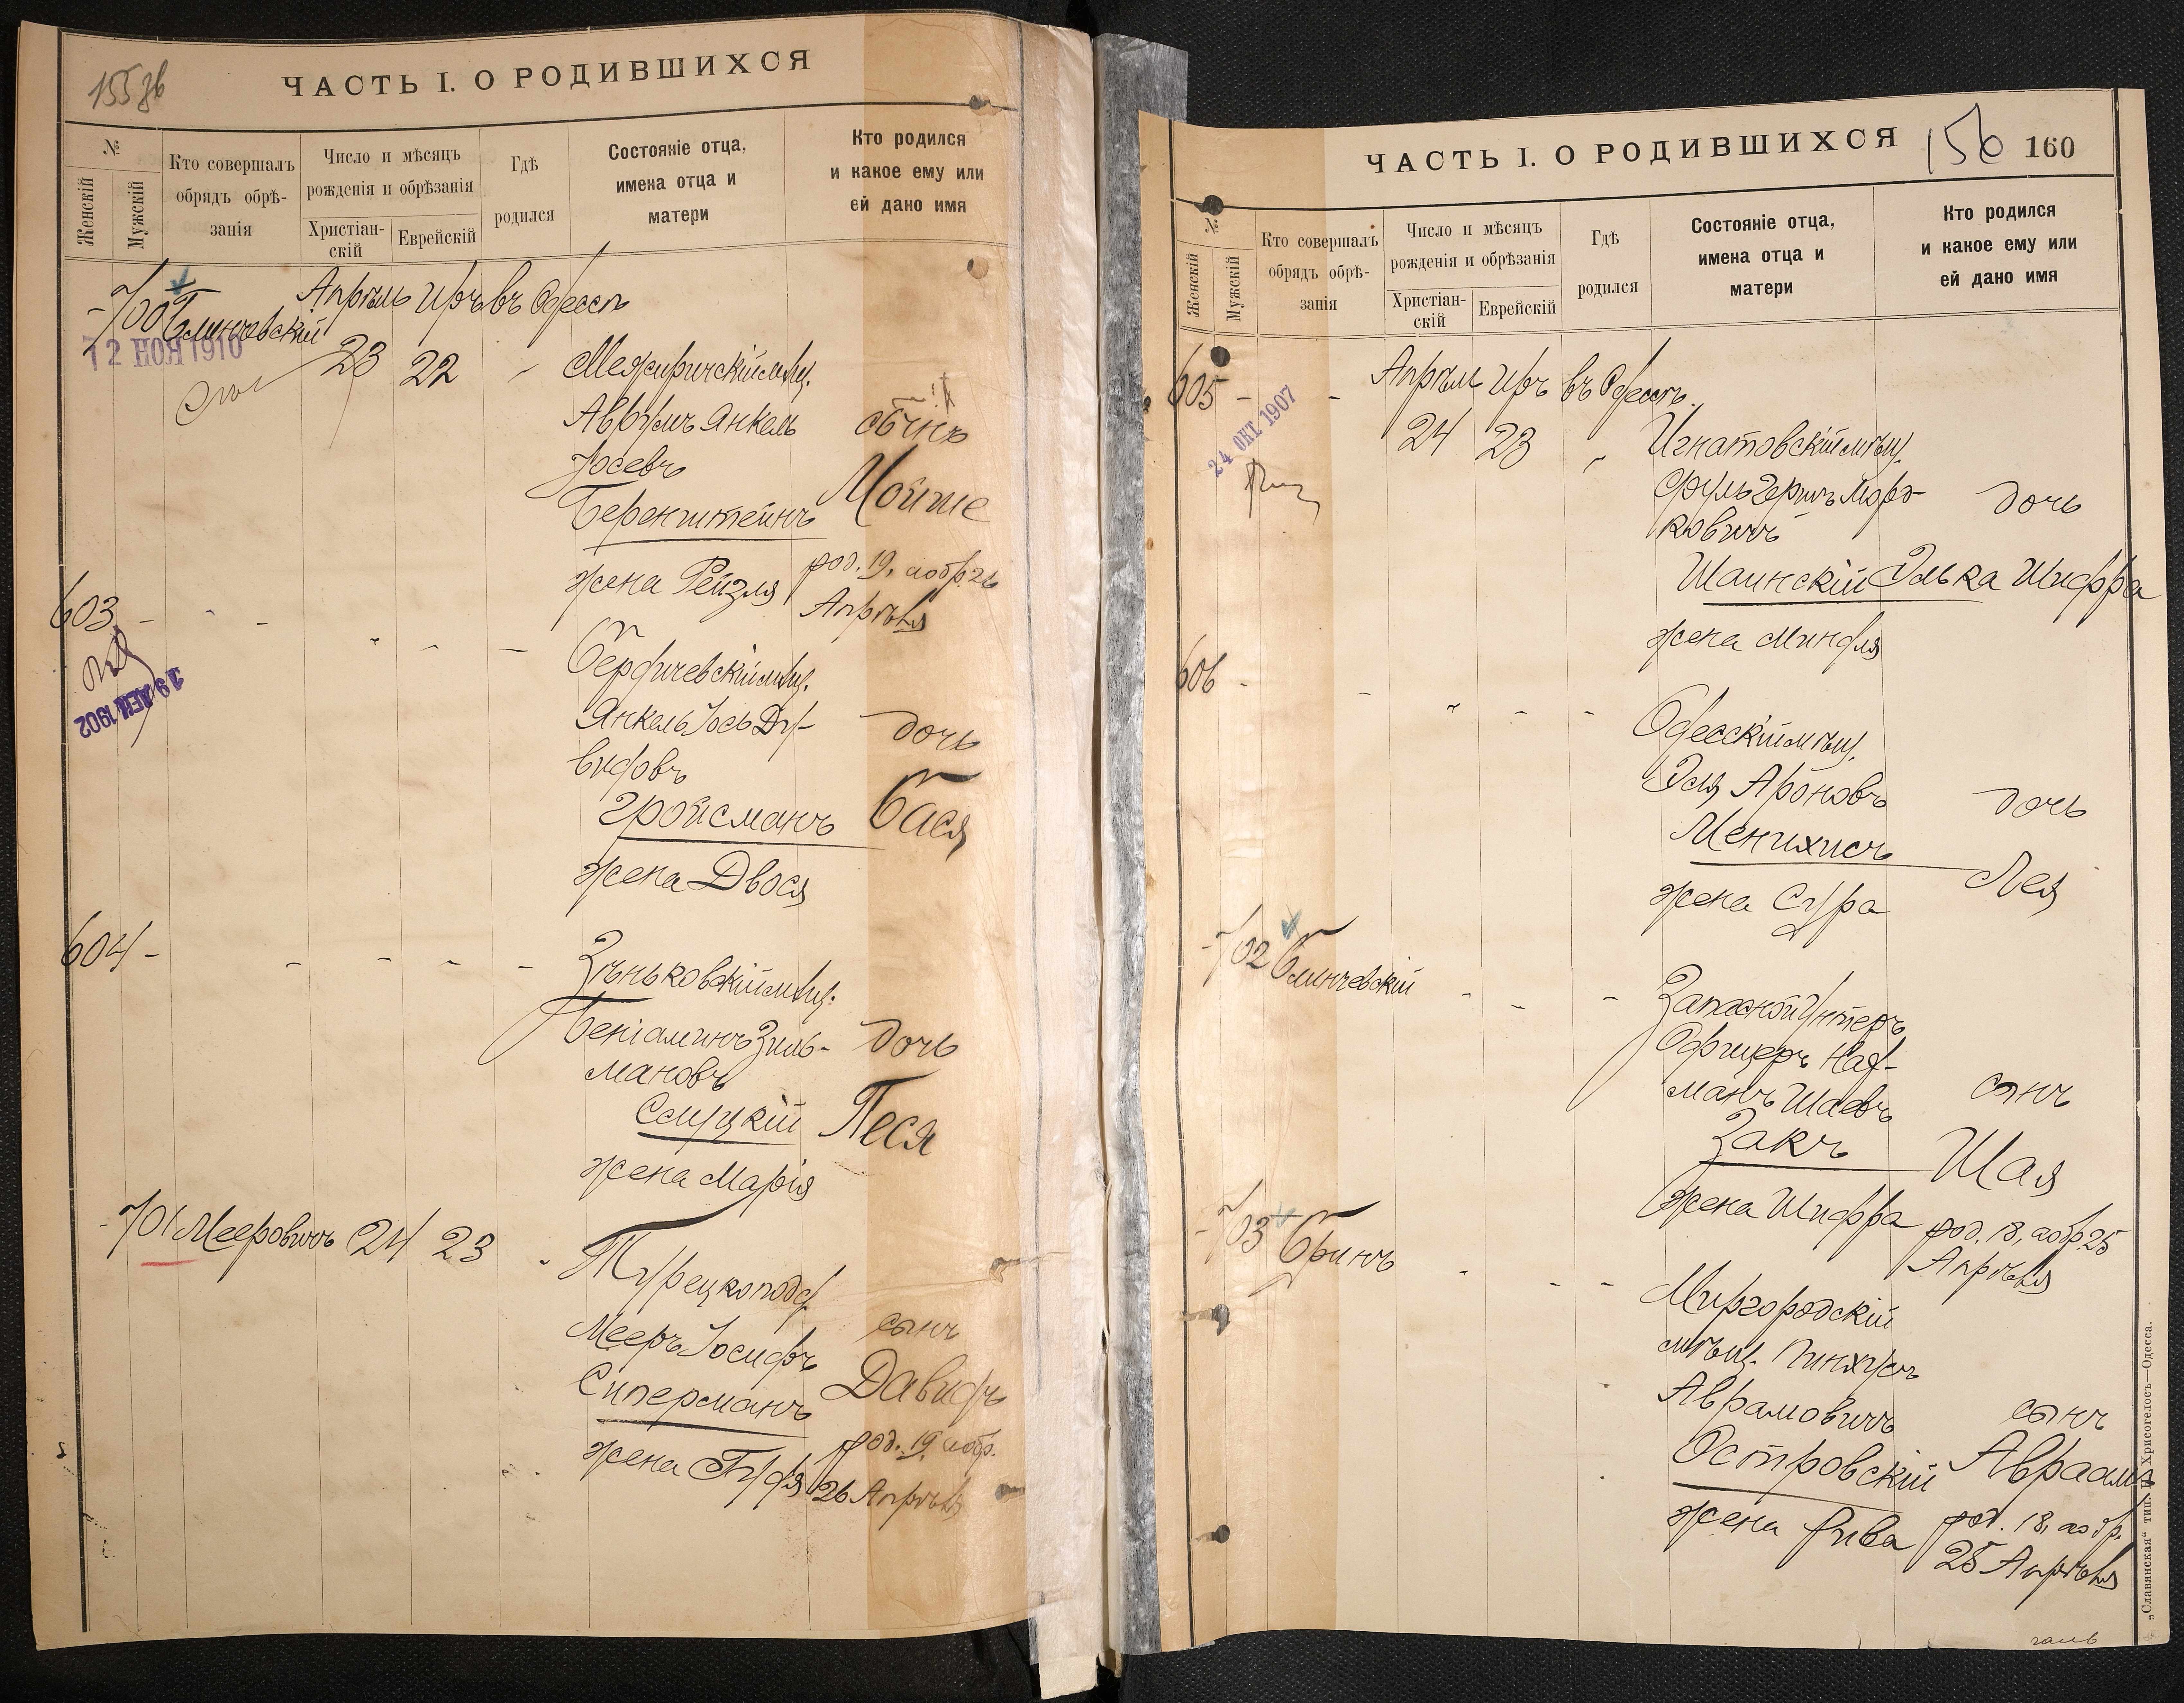 155 зв
ЧАСТЬ I. О РОДИВШИХСЯ
№
Женскій
Мужскій
Кто совершалъ
обрядъ обрѣ-
занія
Число и мѣсяцъ
рожденія и обрѣзанія
Христіан-
скій
Еврейскій
Гдѣ
родился
Состояніе отца,
имена отца и
матери
Кто родился
и какое ему или
ей дано имя
- 700 Блинчевскій Апрѣль Іръ въ Одессѣ
12 НОЯ 1910
23 22 "
Межиричскій мѣщ.
Аврумъ Янкель
Іосевъ
Беренштейнъ
жена Рейзля
сынъ
Мойше
род. 19, а обр. 26
Апрѣля
603 - - - " - -
19 ДЕК 1902
Бердичевскій мѣщ.
Янкель Іось Ду-
видовъ
Гройсманъ
жена Двося
дочь
Бася
604 - - - - - -
Зѣньковскій мѣщ.
Беніаминъ Зиль-
мановъ
Слуцкій
жена Марія
дочь
Песя
- 701 Мееровичъ 24 23 "
Турецкоподд.
Мееръ Іосифъ
Сиперманъ
жена
сынъ
Давидъ
род. 19 а обр.
26 Апрѣля
ЧАСТЬ I. О РОДИВШИХСЯ
156 160
№
Женскій
Мужскій
Кто совершалъ
обрядъ обрѣ-
занія
Число и мѣсяцъ
рожденія и обрѣзанія
Христіан-
скій
Еврейскій
Гдѣ
родился
Состояніе отца,
имена отца и
матери
Кто родился
и какое ему или
ей дано имя
605 - - Апрѣль Іръ въ Одессѣ.
24 ОКТ 1907
24 23 "
Игнатовскій мѣщ.
Сруль Гершъ Морд-
ковичъ
Шаинскій
жена Миндля
дочь
Элька Шифра
606 - - " - -
Одесскій мѣщ.
Эля Ароновъ
Менихисъ
жена Сура
дочь
Лея
- 702 Блинчевскій - - -
Запасной Унтеръ
Офицеръ Нах-
манъ Шаевъ
Закъ
жена Шифра
сынъ
Шая
род. 18, а обр. 25
Апрѣля
- 703 Бринъ - - -
Миргородскій
мѣщ. Пинхусъ
Аврамовичъ
Островскій
жена Рива
сынъ
Авраамъ
род. 18, а обр.
25 Апрѣля
„Славянская" тип. Н. Хрисогелосъ—Одесса.